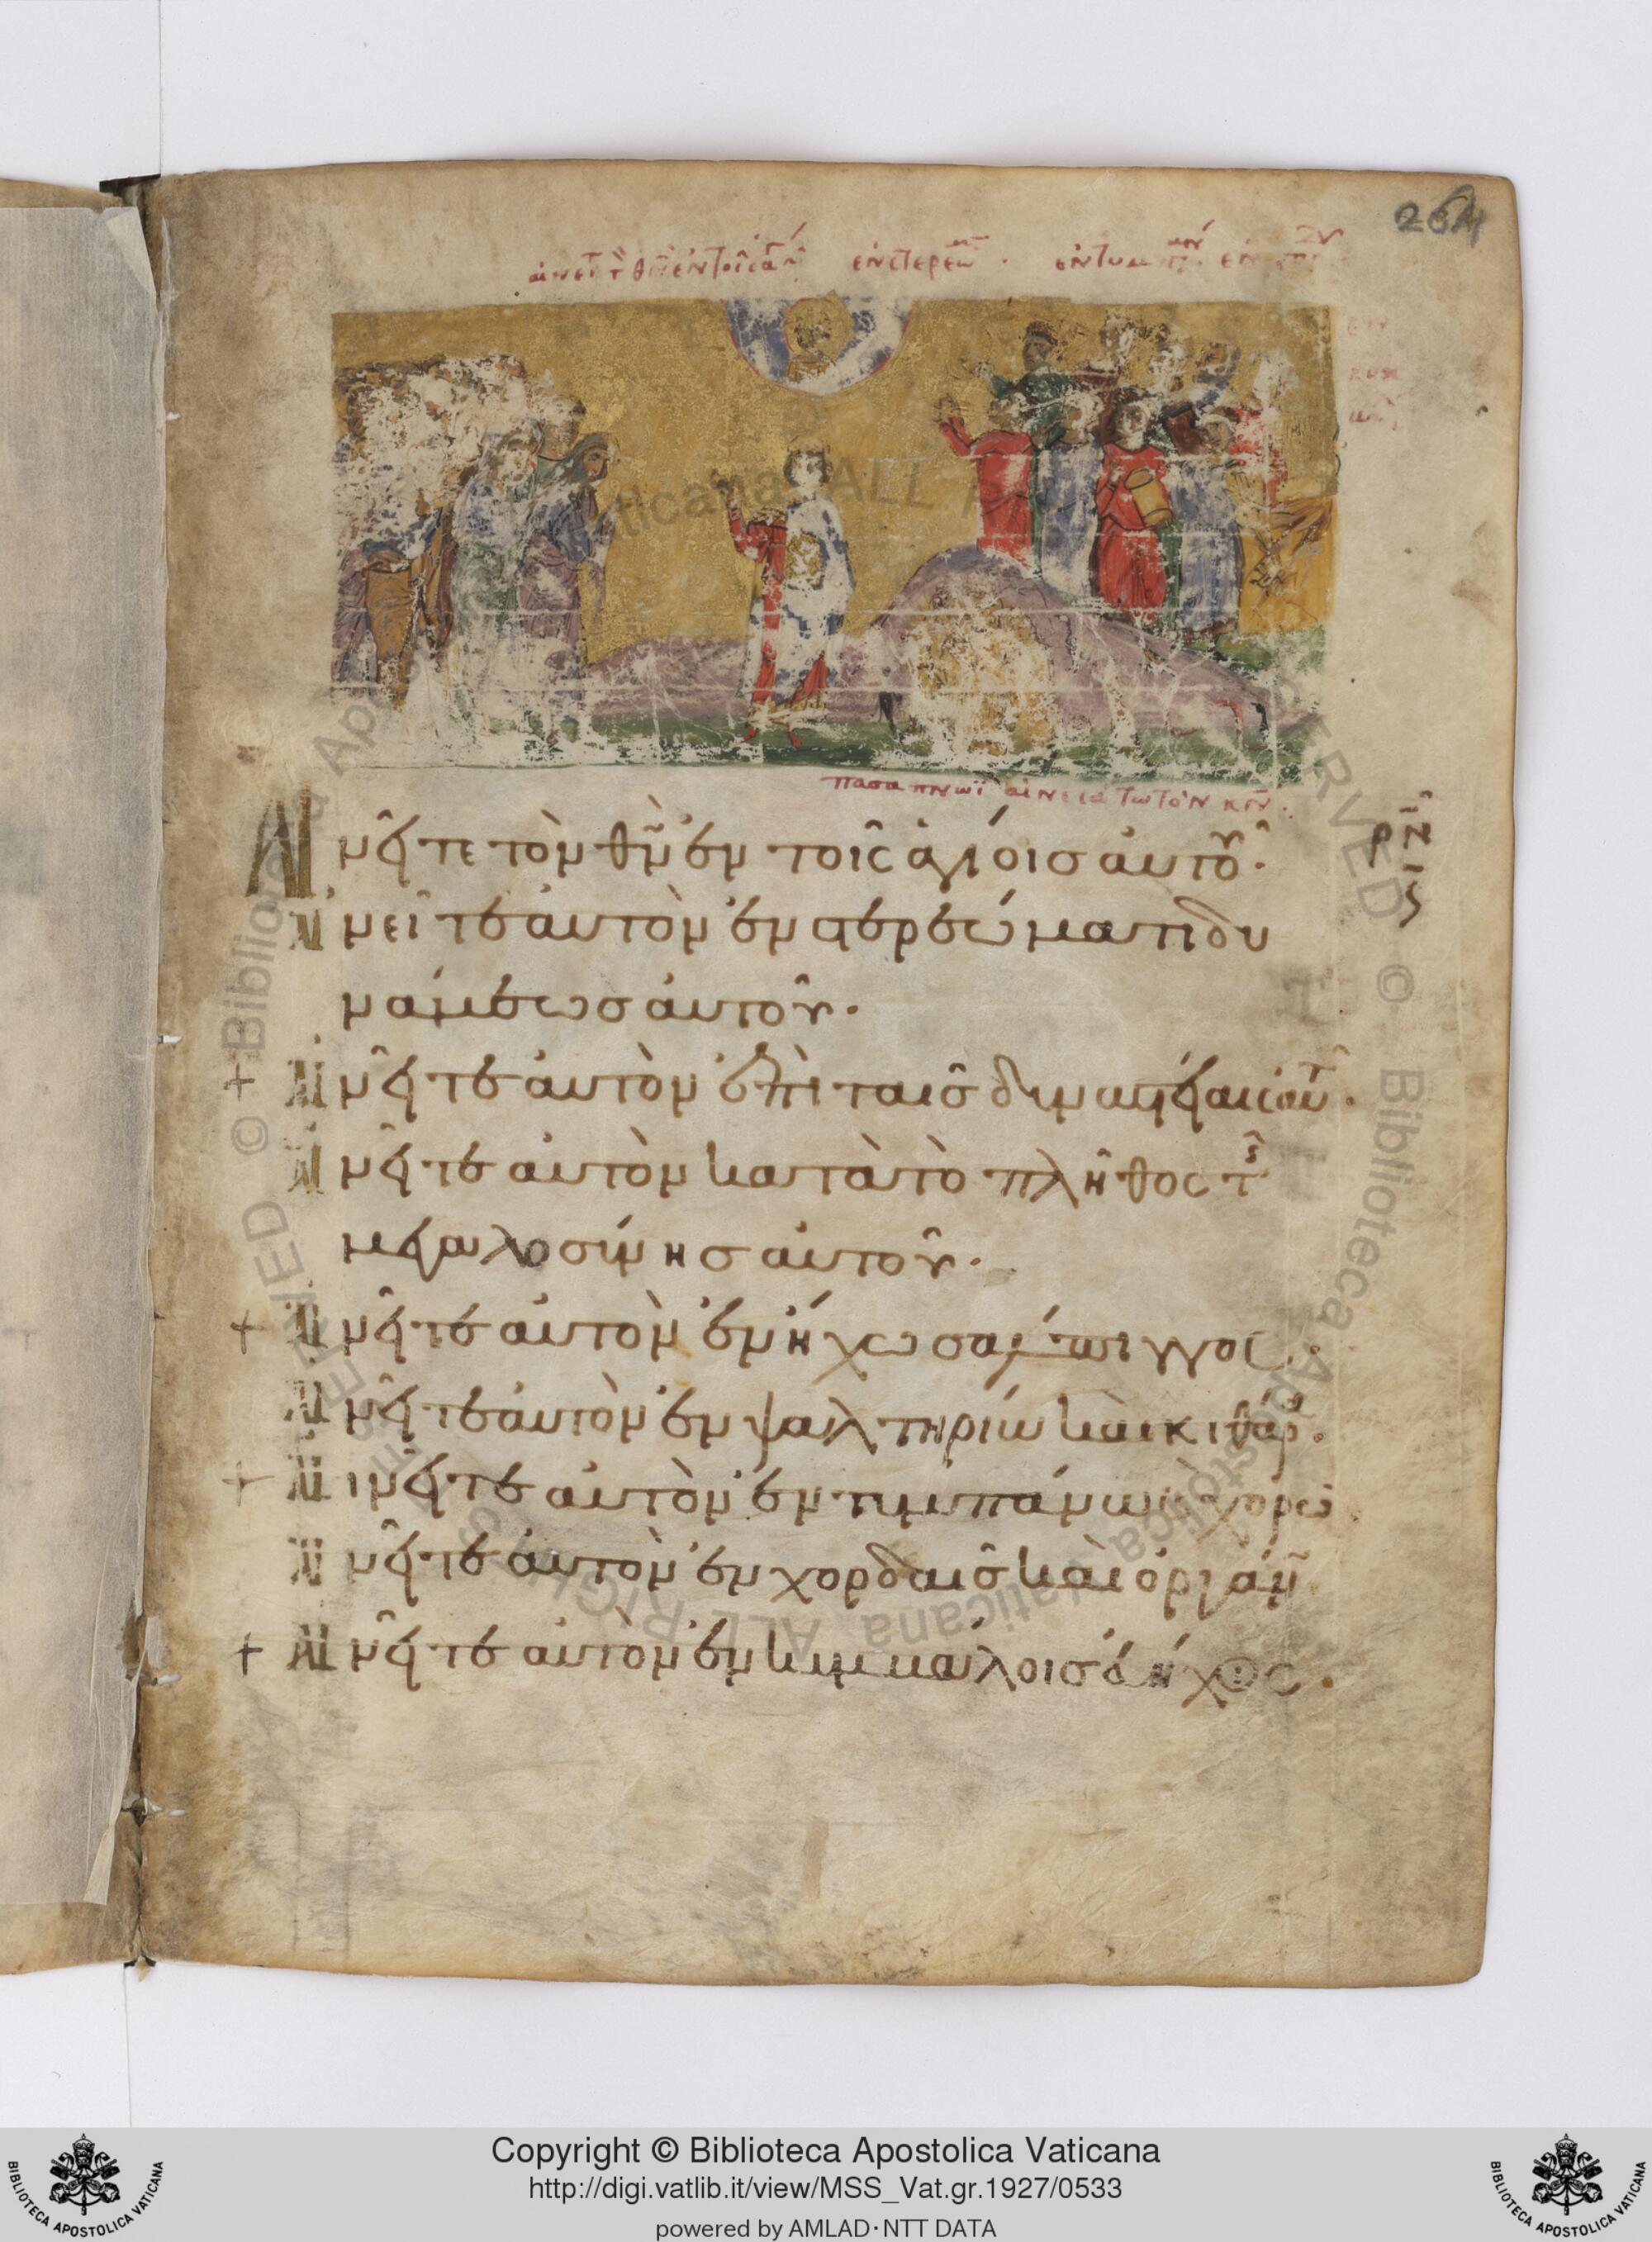 264
αἰνεῖτε τὸν θν ἐν τοῖς ἁγί
ἐν στερεώμ
ἐν τυμπάν
πασα πνωὴ αἰνεσάτω τὸν κν
ρν
Αἰνεῖτε τὸν θν ἐν τοῖς ἁγίοισ αὐτοῦ·
Αἰνεῖτε αὐτὸν ἐν στερεώματι δυ
νάμεωσ αὐτοῦ·
Αἰνεῖτε αὐτὸν ἐπὶ ταῖσ δυναστείαις αὐτ·
Αἰνεῖτε αὐτὸν κατὰ τὸ πλῆθος τῆσ
μεγαλοσύνησ αὐτοῦ·
+ Αἰνεῖτε αὐτὸν ἐν ἤχω σάλπιγγος·
Αἰνεῖτε αὐτὸν ἐν ψαλτηρίω καὶ κιθάρ·
+ Αἰινεῖτε αὐτὸν ἐν τυμπάνω κ χορῶ
Αἰνεῖτε αὐτὸν ἐν χορδαῖσ καὶ ὀργάν
+ Αἰνεῖτε αὐτὸν ἐν κυμβάλοισ εὐήχοις·
Copyright © Biblioteca Apostolica Vaticana
http://digi.vatlib.it/view/MSS_Vat.gr.1927/0533
powered by AMLAD·NTT DATA
BIBLIOTECA APOSTOLICA VATICANA
BIBLIOTECA APOSTOLICA VATICANA